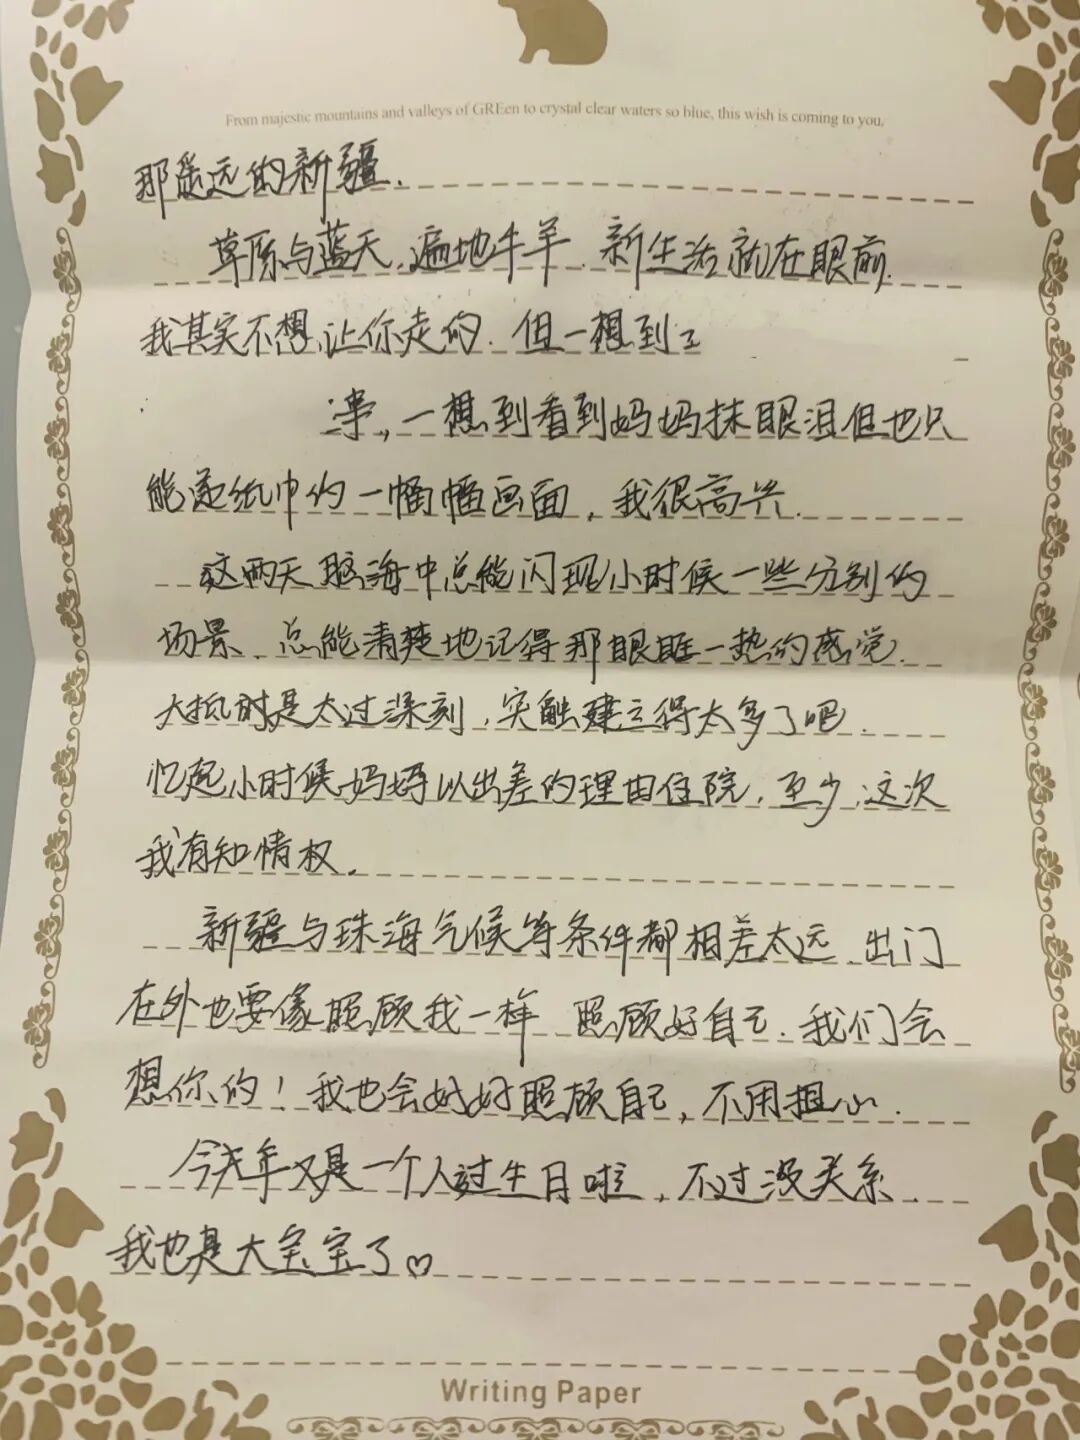 From majestic mountains and valleys of GREen to crystal clear waters so blue, this wish is coming to you.
那遥远的新疆.
草原与蓝天,遍地牛羊.新生活就在眼前.
我其实不想让你走的.但一想到
事,一想到看到妈妈抹眼泪但也只
能递纸巾的一幅幅画面,我很高兴.
这两天脑海中总能闪现小时候一些分别的
场景、总能清楚地记得那眼眶一热的感觉.
大抵时是太过深刻,突触建立得太多了吧.
忆起小时候妈妈以出差的理由住院,至少,这次
我有知情权.
新疆与珠海气候等条件都相差太远.出门
在外也要像照顾我一样 照顾好自己.我们会
想你的!我也会好好照顾自己,不用担心.
今年又是一个人过生日啦,不过没关系.
我也是大宝宝了♡
Writing Paper